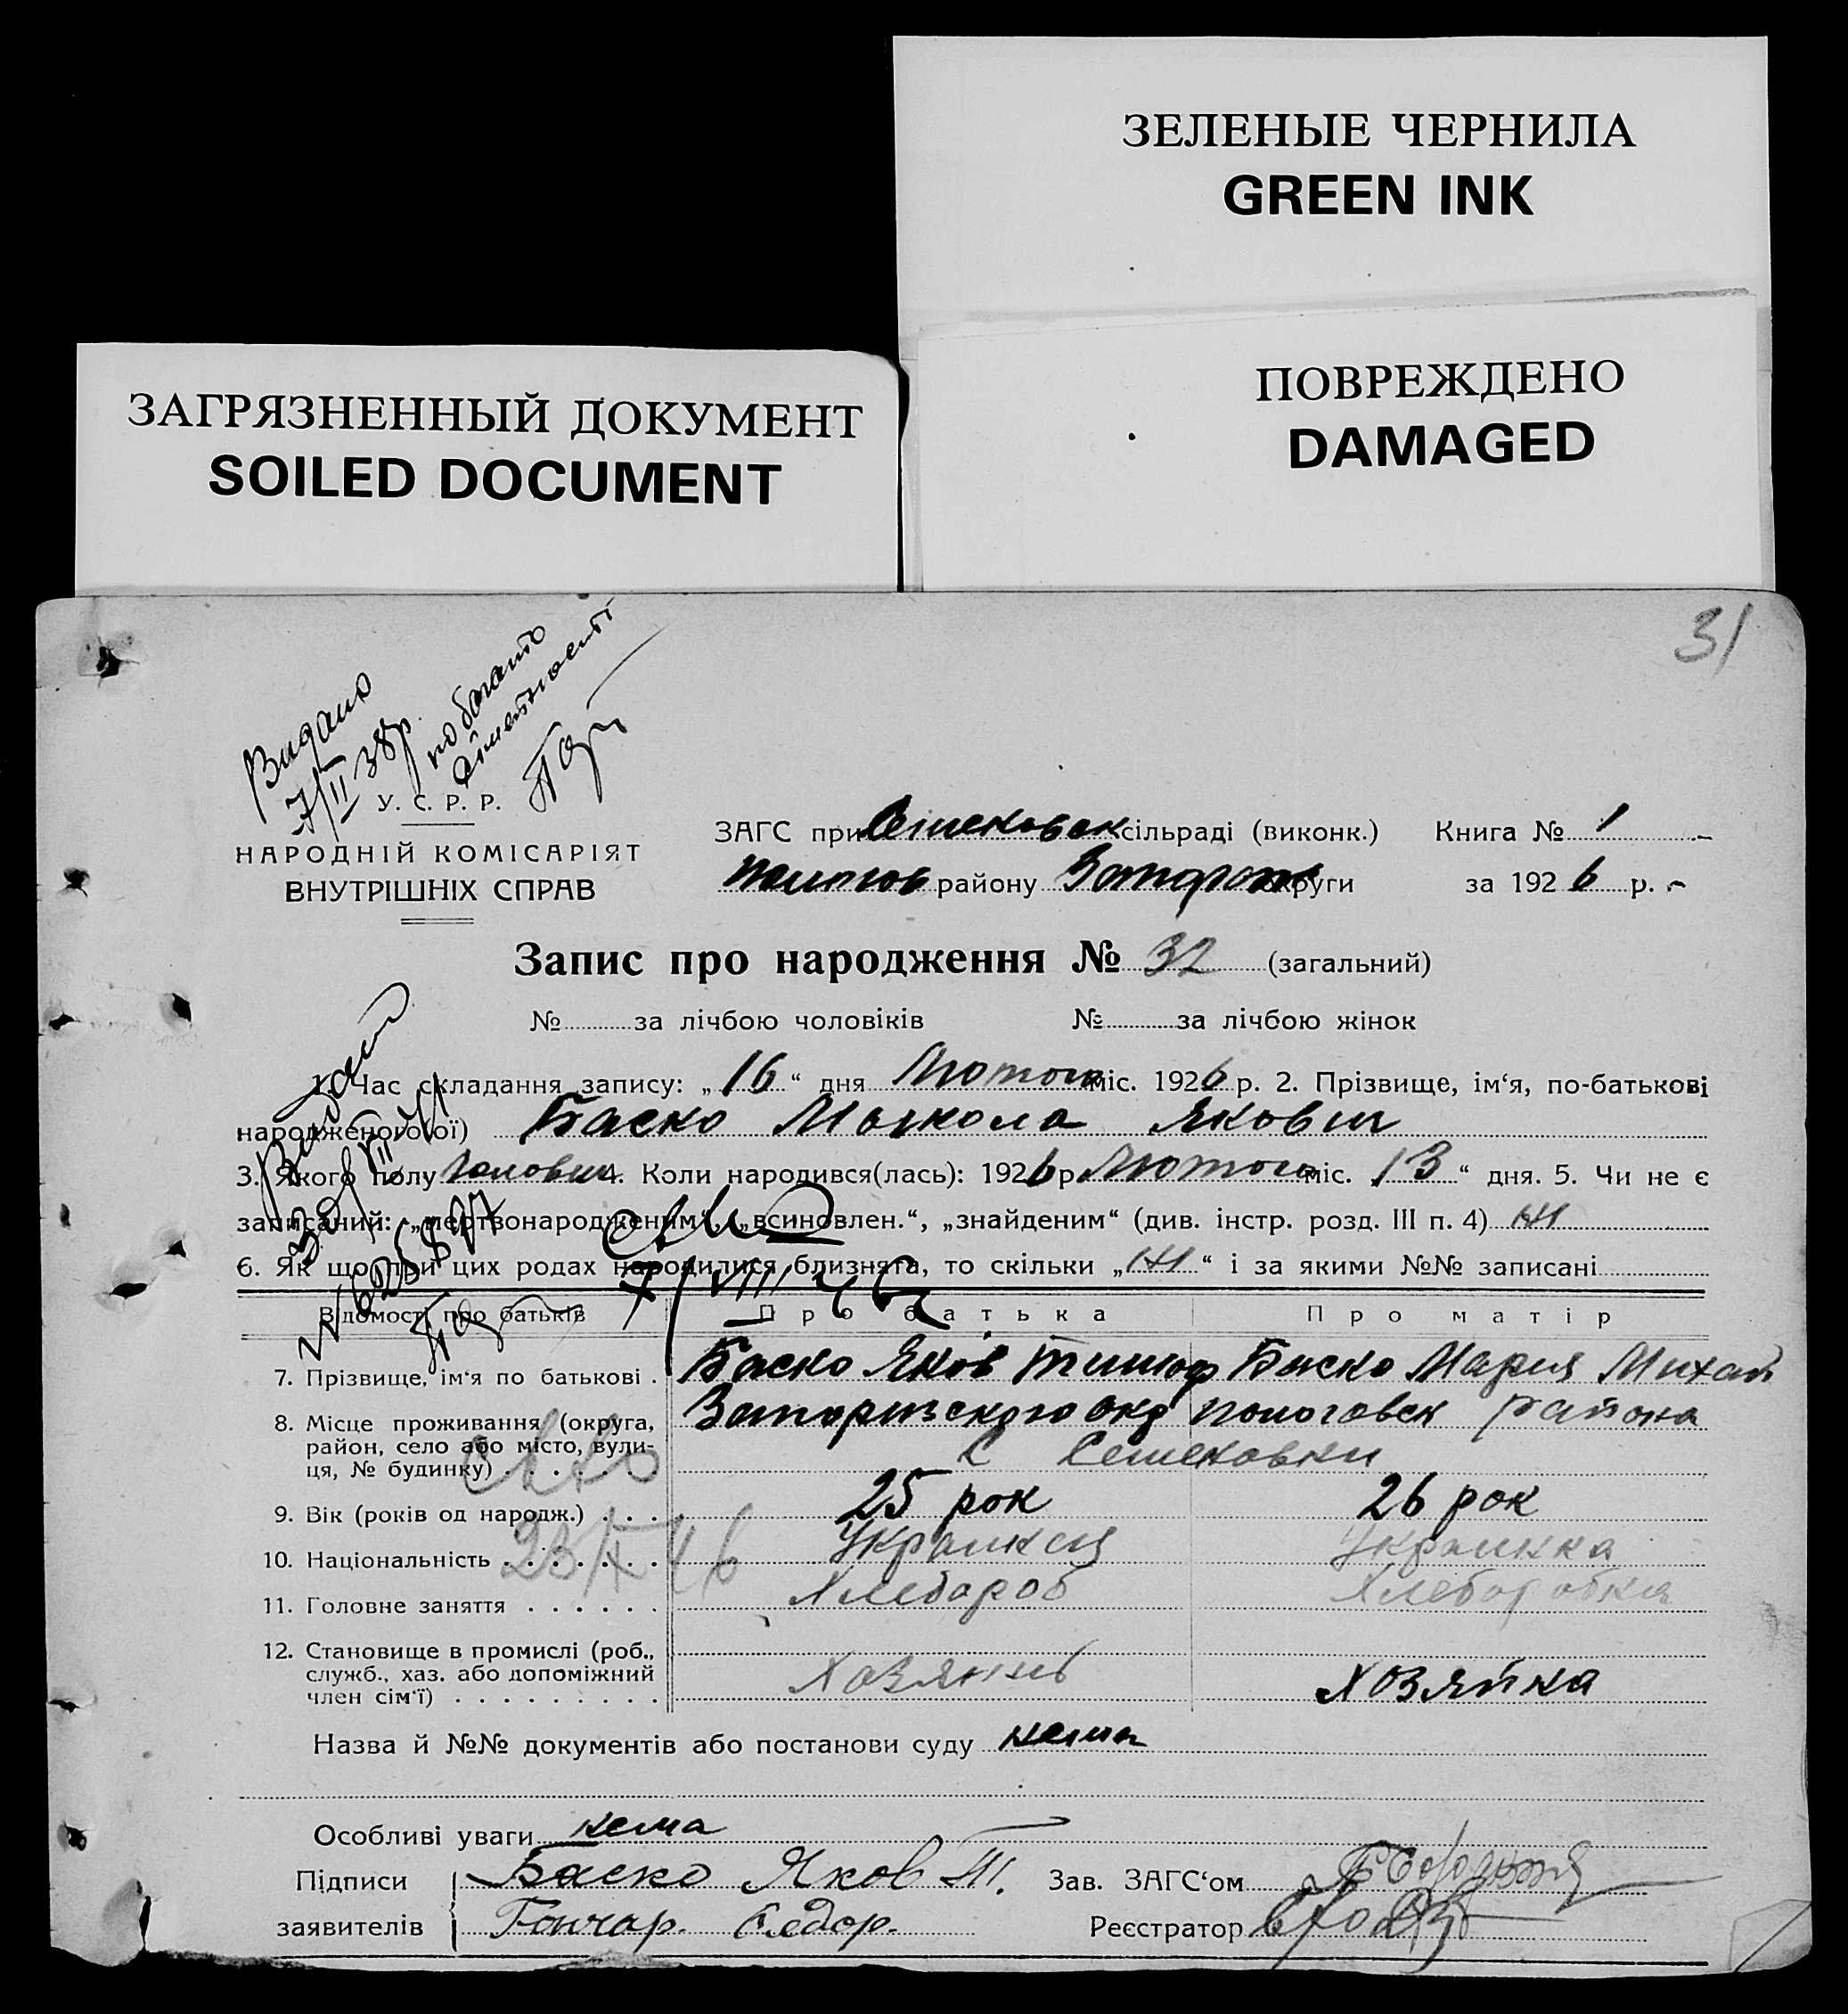 ЗЕЛЕНЫЕ ЧЕРНИЛА
GREEN INK
ПОВРЕЖДЕНО
DAMAGED
ЗАГРЯЗНЕННЫЙ ДОКУМЕНТ
SOILED DOCUMENT
31
Видано
7/II 38р.
по багато
дітності
У. С. Р. Р.
НАРОДНІЙ КОМІСАРІЯТ
ВНУТРІШНІХ СПРАВ
ЗАГС при Семеновск сільраді (виконк.) Книга № 1
Пологов району Запорож округи за 1926 р.
Запис про народження № 32 (загальний)
№ за лічбою чоловіків № за лічбою жінок
1. Час складання запису: „16“ дня Лютого міс. 1926 р. 2. Прізвище, ім‘я, по-батькові
народженого(ої) Баско Микола Якович
3. Якого полу Чолович 4. Коли народився(лась): 1926 р Лютого міс. 13“ дня. 5. Чи не є
записаний: „мертвонародженим“, „всиновлен.“, „знайденим“ (див. інстр. розд. III п. 4) ні
6. Як що при цих родах народилися близнята, то скільки „ні“ і за якими №№ записані
7/VIII 42
Відомості про батьків Про батька Про матір
7. Прізвище, ім‘я по батькові . Баско Яков Тимоф Баско Мария Михай
8. Місце проживання (округа, Запоризского окр пологовск района
район, село або місто, вули-
ця, № будинку) . . . . с Семеновки
9. Вік (років од народж.) . . . 25 рок 26 рок
10. Національність . . . . . . . Украинец Украинка
23/X 46
11. Головне заняття . . . . . . Хлебороб Хлеборобка
12. Становище в промислі (роб.,
служб., хаз. або допоміжний Хозяинь Хозяйка
член сім‘ї) . . . . . . . . .
Назва й №№ документів або постанови суду нема
Особливі уваги нема
Підписи Баско Яков Т. Зав. ЗАГС‘ом
заявителів Гончар. Федор. Реєстратор